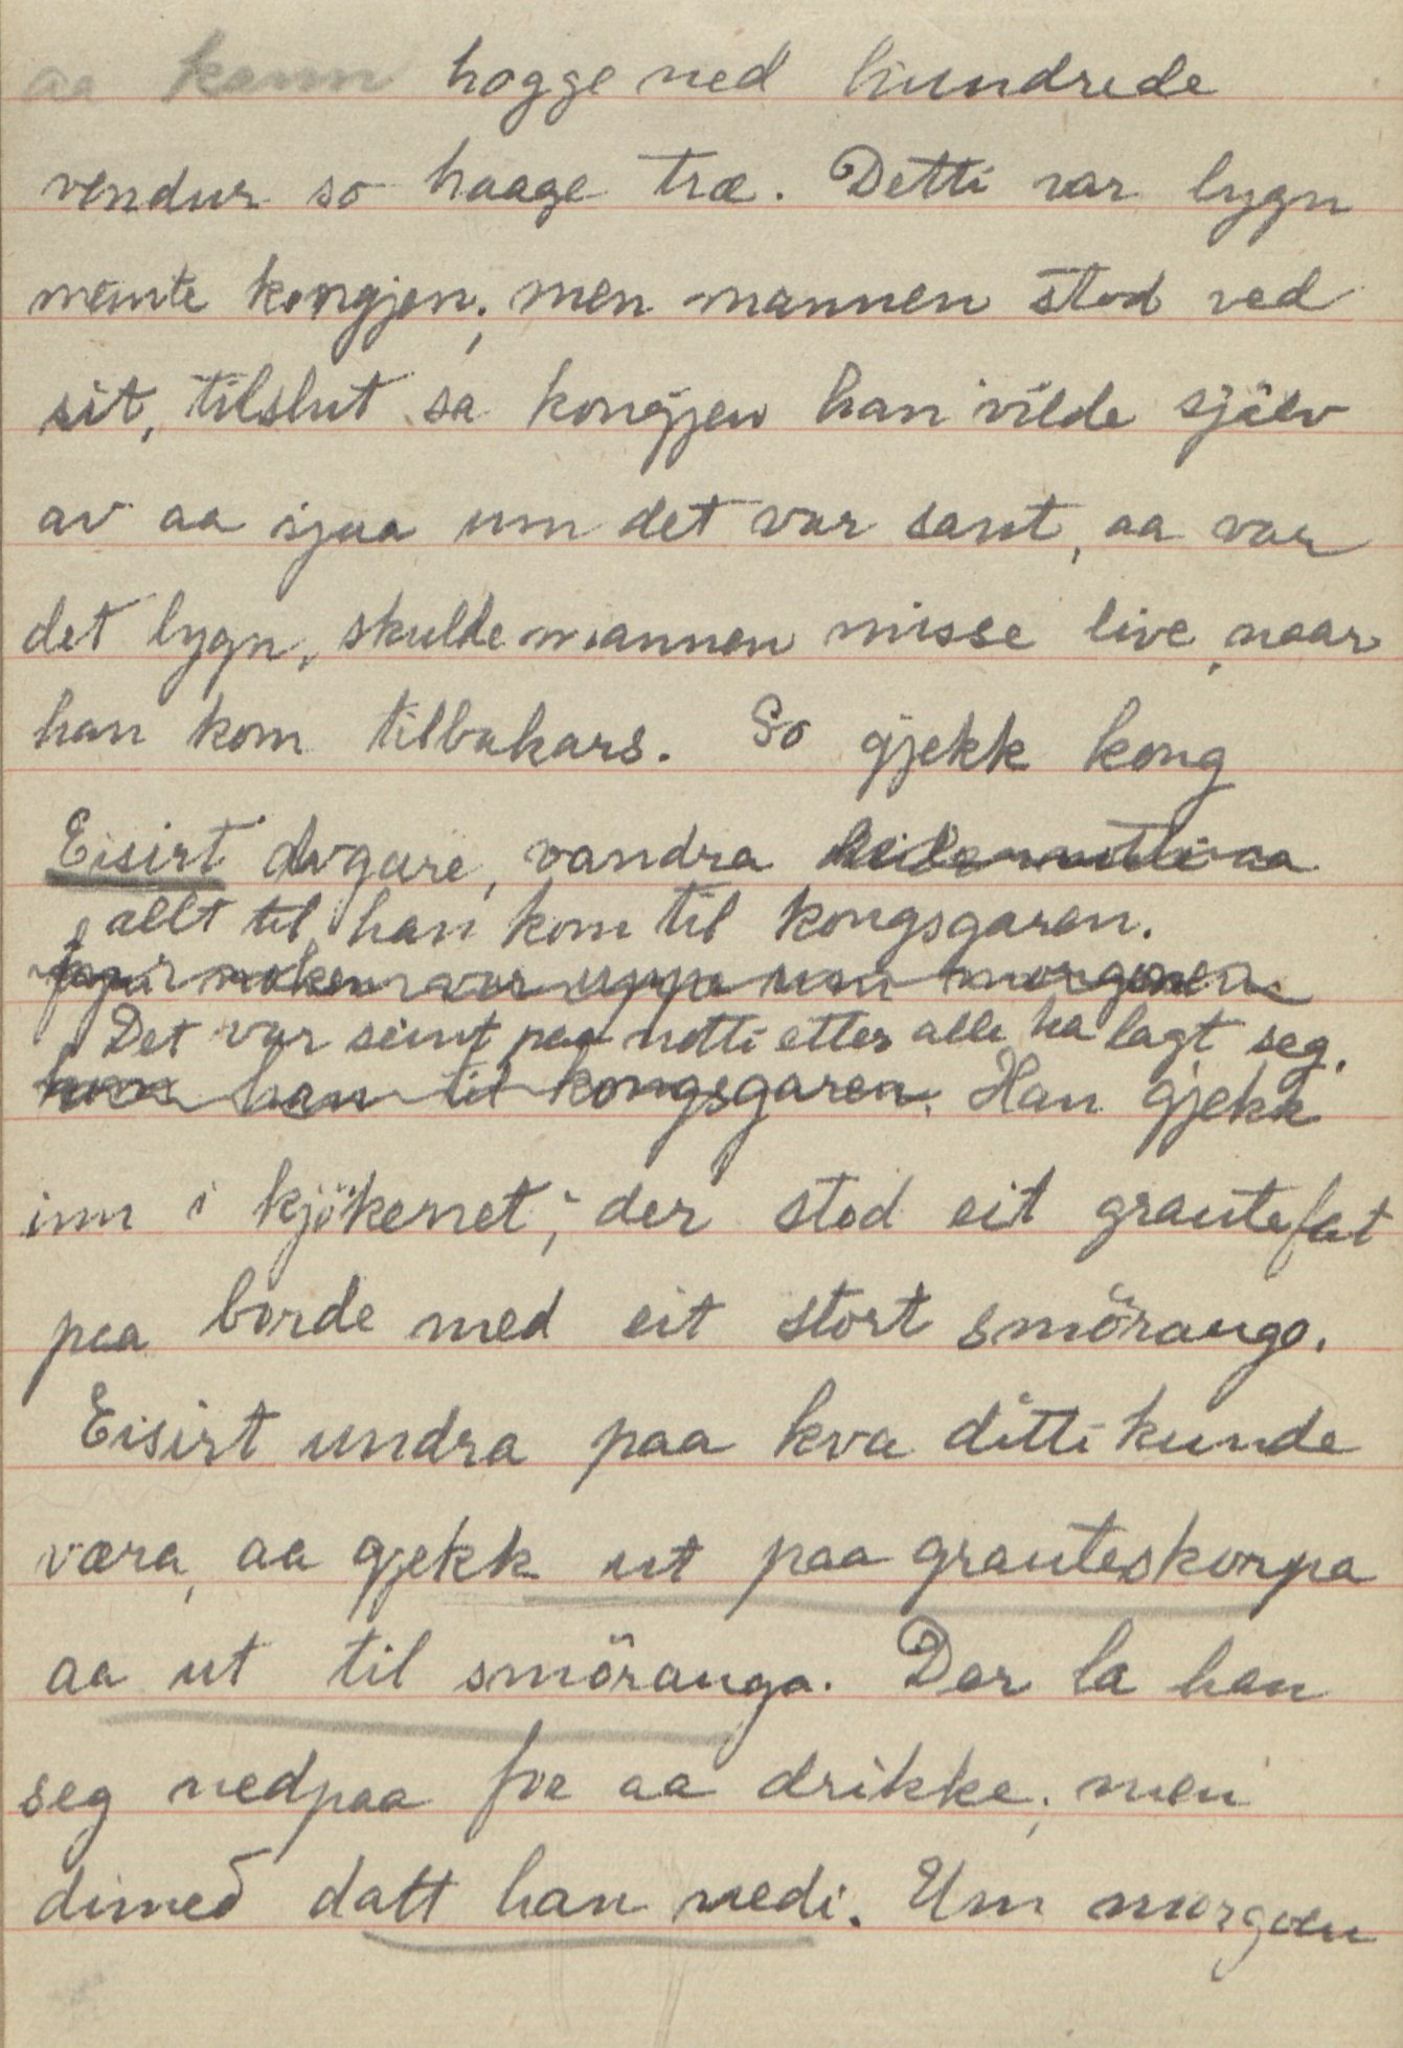 aa kann hogge ned hundrede
vendur so haage træ. Detti var lygn
meinte kongjen; men mannen stod ved
sit, tilslut sa kongjen han vilde sjölv
av aa sjaa um det var sant, aa var
det lygn, skulde mannen misse live, naar
han kom tilbakars. So gjekk kong
Eisirt dvgare, vandra heile notti aa
allt til han kom til kongsgaren.
noken var uppe um morgonen
Det var seint paa notti etter alle ha lagt seg.
kom han til kongsgaren. Han gjekk
inn i kjökenet; der stod eit grautefat
paa borde med eit stort smörauga.
Eisirt undra paa kva ditti kunde
væra, aa gjekk ut paa grauteskorpa
aa ut til smörauga. Der la han
seg nedpaa foe aa drikke; men
dimed datt han nedi. Um morgoen